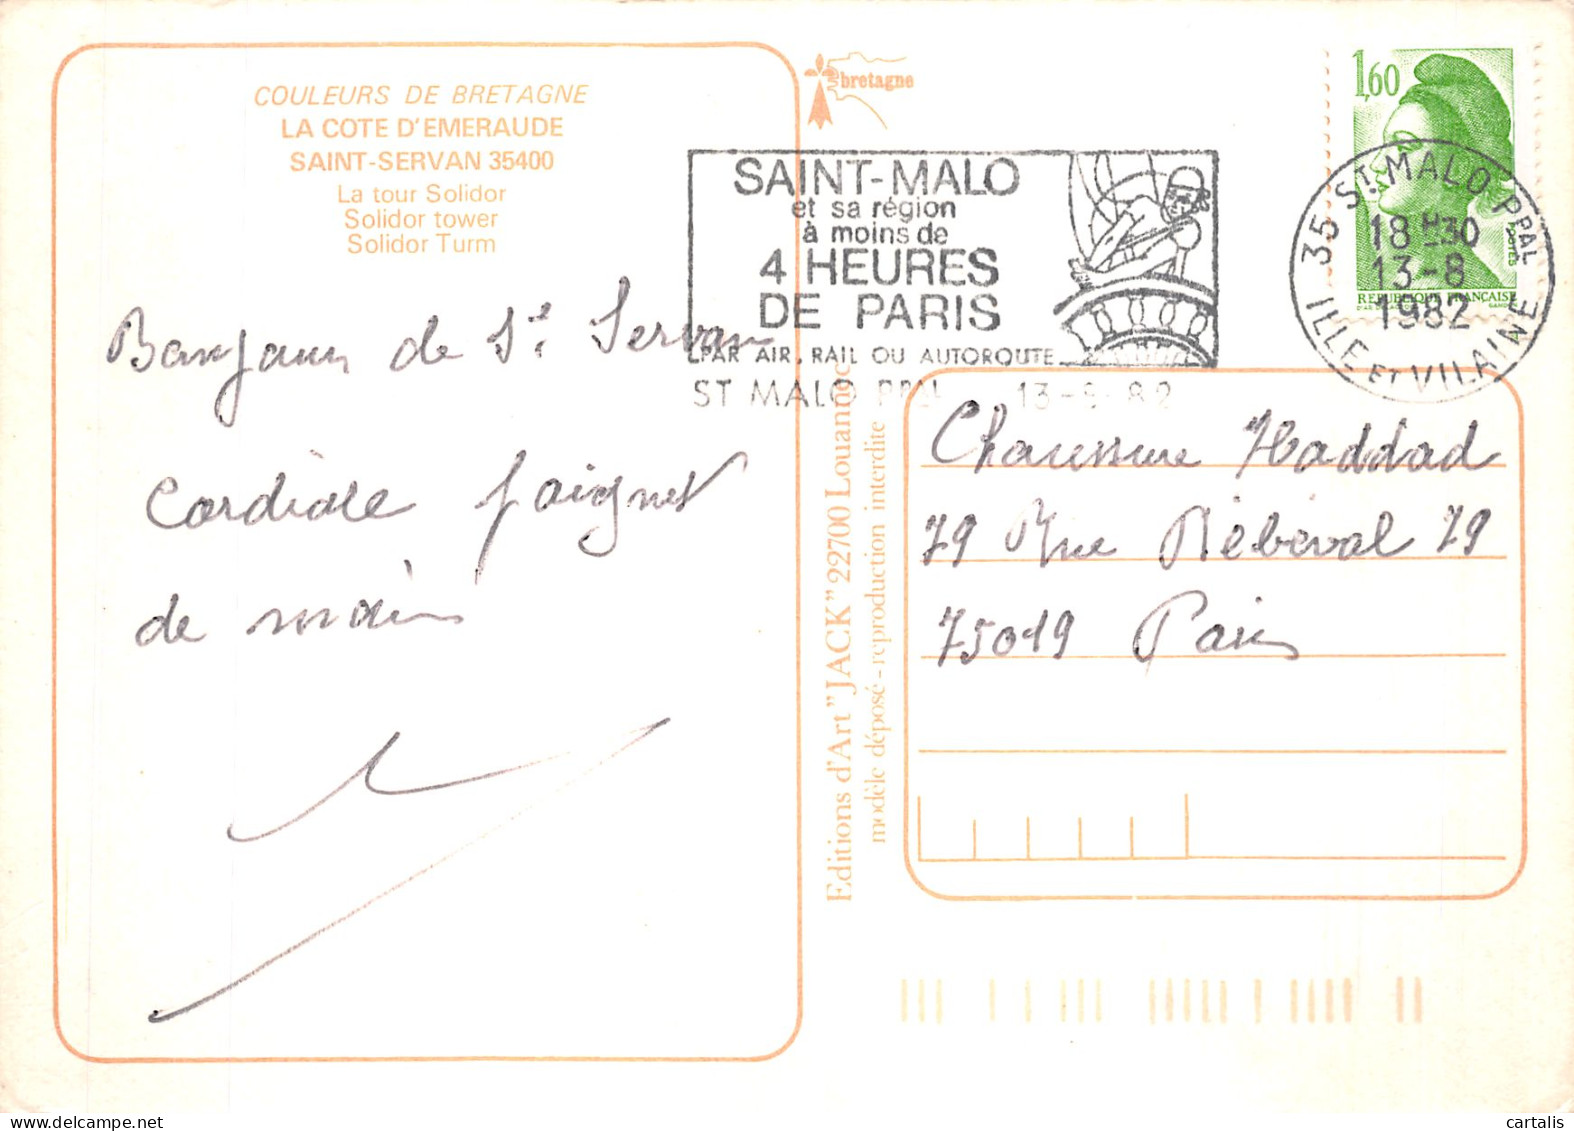 COULEURS DE BRETAGNE
LA COTE D'EMERAUDE
SAINT-SERVAN 35400
La tour Solidor
Solidor tower
Solidor Turm
Bonjour de St Servan
Cordiale poignet
de main
bretagne
SAINT-MALO
et sa région
à moins de
4 HEURES
DE PARIS
PAR AIR, RAIL OU AUTOROUTE
ST MALO PPAL 13-8-82
1,60
REPUBLIQUE FRANÇAISE
35 ST MALO PPAL
18H30
13-8
1982
ILLE ET VILAINE
Editions d'Art "JACK" 22700 Louannec
modèle déposé - reproduction interdite
Chaussure Haddad
79 Rue Rébeval 79
75019 Paris
cartalis